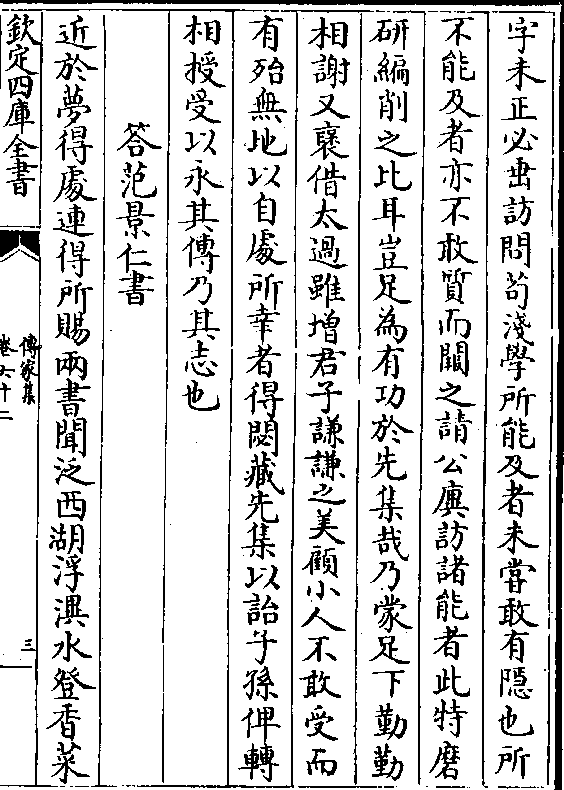 字未正必出訪問苟淺學所能及者未嘗敢有隱也所
不能及者亦不敢質而闕之請公廣訪諸能者此特磨
研編削之比耳豈足為有功於先集哉乃蒙足下勤勤
相謝又褒借太過雖增君子謙謙之美顧小人不敢受而
有殆無地以自處所幸者得閟藏先集以詒子孫俾轉
相授受以永其傳乃其志也
答范景仁書
近於夢得處連得所賜兩書聞泛西湖浮潩水登香菜
欽定四庫全書
傳家集
卷六十二
三